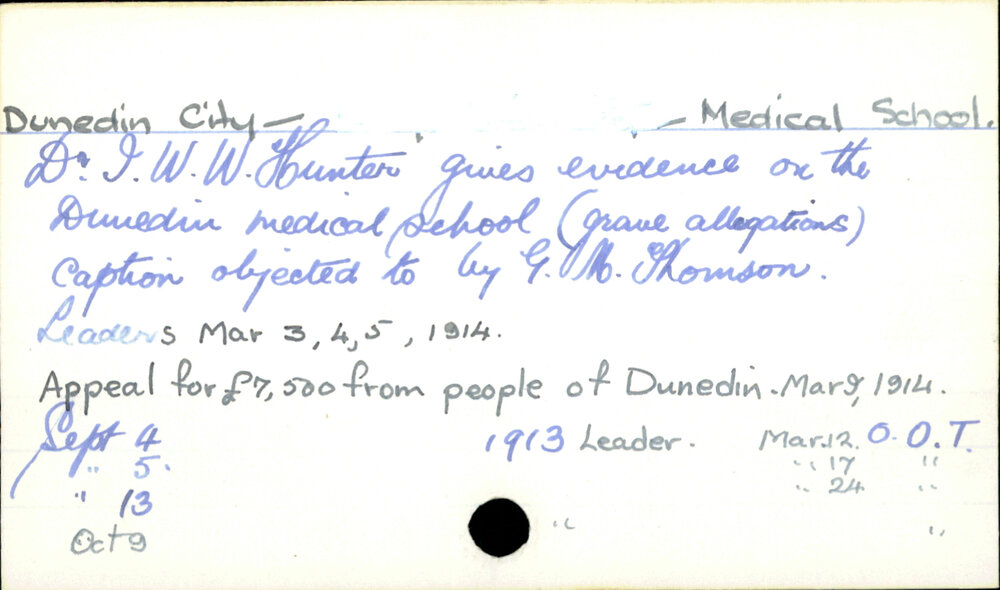 Dunedin City — — Medical School.
Dr. I. W. W. Hunter gives evidence on the
Dunedin medical school (grave allegations)
Caption objected to by G. M. Thomson.
Leaders Mar 3, 4, 5, 1914.
Appeal for £7,500 from people of Dunedin. Mar 9, 1914.
Sept 4 1913 Leader. Mar. 12. O. O.T.
" 5. " 17 "
" 13 " 24 "
Oct 9 " "